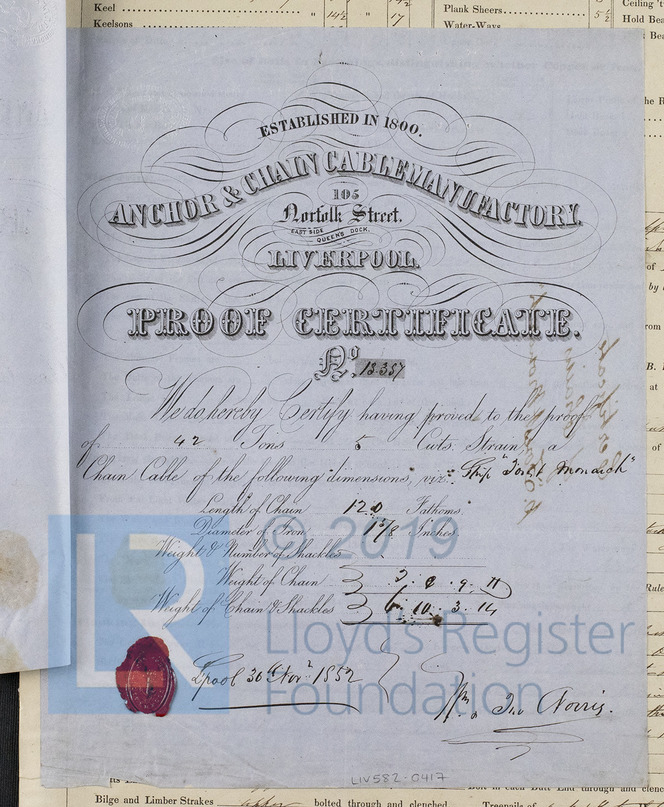 Keel
" 14½ " 17
Keelsons
Plank Sheers
5½
Water-Ways
Ceiling
Hold Bea
ESTABLISHED IN 1800.
ANCHOR & CHAIN CABLE MANUFACTORY.
105
Norfolk Street.
EAST SIDE
QUEEN'S DOCK.
LIVERPOOL.
PROOF CERTIFICATE.
No. 13357
We do hereby Certify having proved to the proof
of 42 Tons 5 Cwts. Strain, a
Chain Cable of the following dimensions, viz: Ship Monarch"
Length of Chain 120 Fathoms.
Diameter of Iron 1⅝ Inches.
Weight & Number of Shackles
Weight of Chain
Weight of Chain & Shackles 6. 10. 3. 14
© 2019
LR
Lloyd's Register
Foundation
Lpool 30th Novr 1852
Wm & Jno Norris.
LIV582-0417
Bilge and Limber Strakes
bolted through and clenched
Treenails of